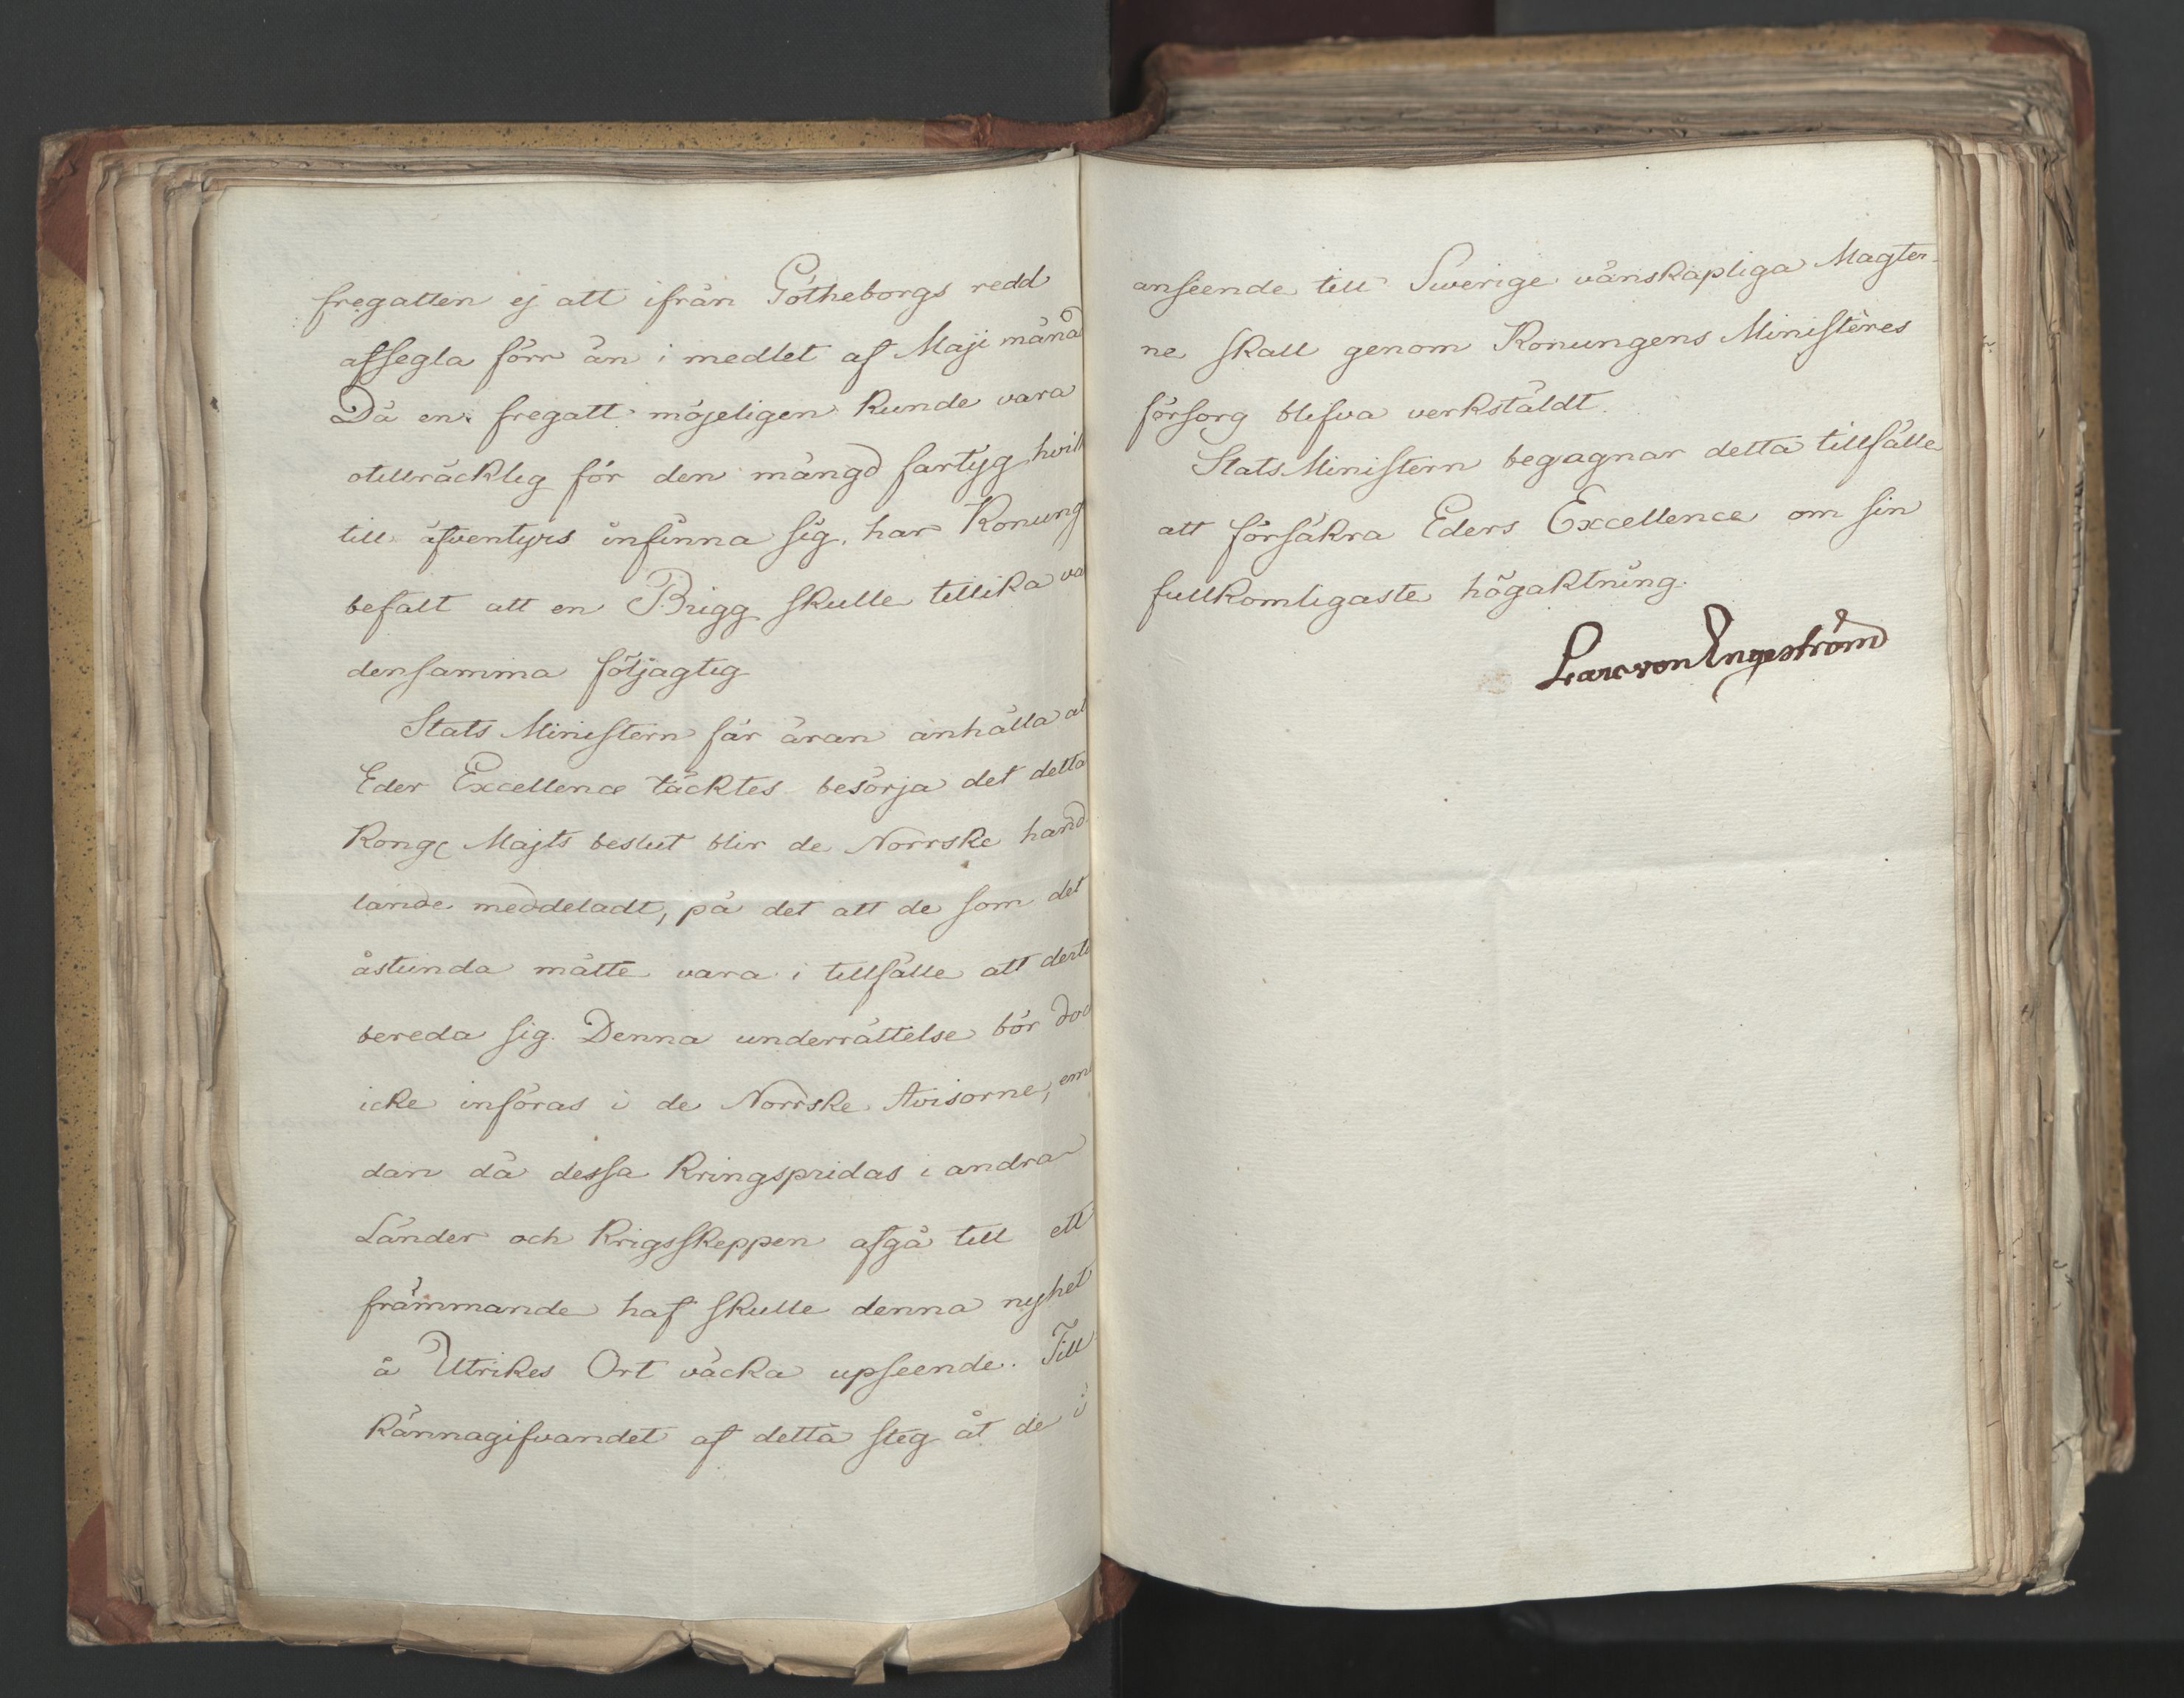 fregatten ej att ifrån Götheborgs redd
afsegla förr än i medlet af Maji månad
Då en fregatt möjeligen kunde vara
otillräcklig för den mängd fartyg hvilk
till äfventyrs infinna sig, har Konung
befalt att en Brigg skulle tillika va
densamma följagtig
Stats Ministern får äran anhålla at
Eder Excellence täcktes besörja det detta
Kongl Majts beslut blir de Norrske hand
lande meddeladt, på det att de som det
åstunda måtte vara i tillfälle att derti
bereda sig. Denna underrättelse bör doc
icke införas i de Norrske Avisorne, em
dan då dessa kringspridas i andra
Länder och Krigsskeppen afgå till ett
främmande haf skulle denna nyhet
å Utrikes Ort väcka upseende. Till
kännagifvandet af detta steg åt de i
anseende till Swerige vänskapliga Magter-
ne skall genom Konungens Ministères
försorg blifva verkstäldt.
Stats Ministern begagnar detta tillfälle
att försäkra Eders Excellence om sin
fullkomligaste högaktning.
Lars von Engeström